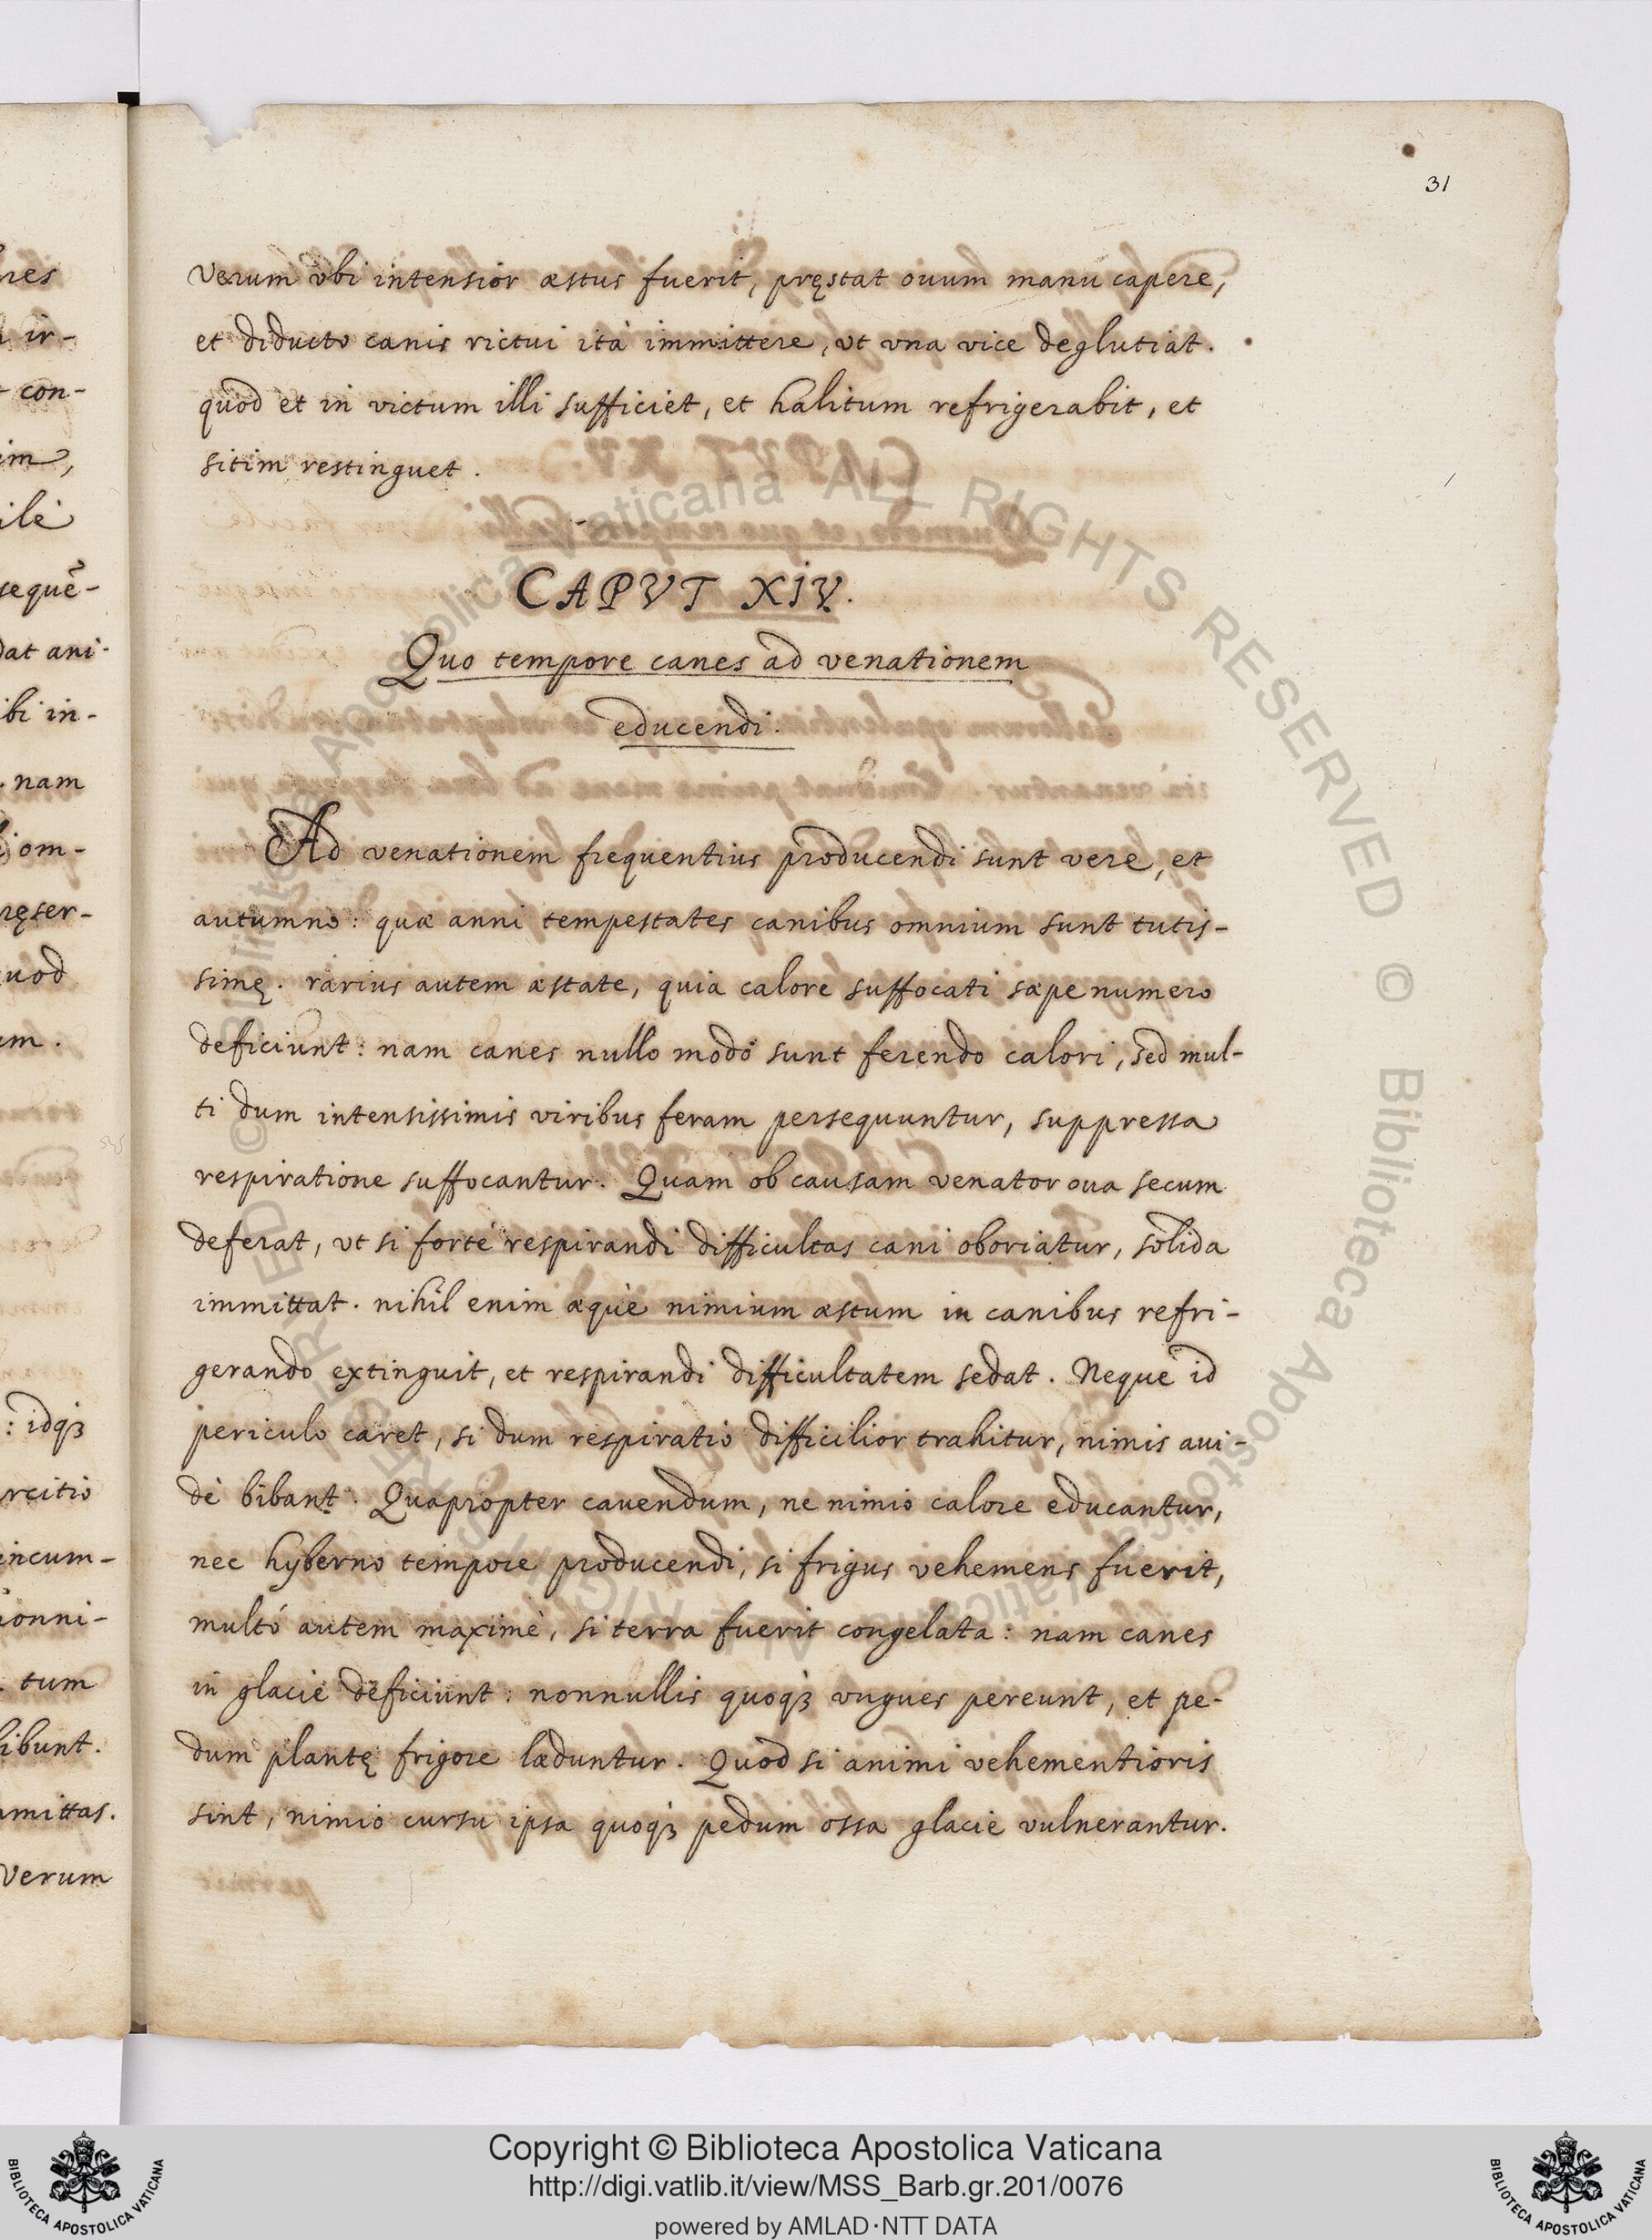 31
Verum vbi intensior æstus fuerit, pręstat ouum manu capere,
et diducto canis rictui ità immittere, vt vna vice deglutiat.
quod et in victum illi sufficiet, et halitum refrigerabit, et
sitim restinguet.
CAPVT XIV.
Quo tempore canes ad venationem
educendi.
Ad venationem frequentius producendi sunt vere, et
autumno: quæ anni tempestates canibus omnium sunt tutis-
simę. rarius autem æstate, quia calore suffocati sæpe numero
deficiunt: nam canes nullo modo sunt ferendo calori, sed mul-
ti dum intensissimis viribus feram persequuntur, suppressa
respiratione suffocantur. Quam ob causam venator oua secum
deferat, vt si fortè respirandi difficultas cani oboriatur, solida
immittat. nihil enim æquè nimium æstum in canibus refri-
gerando extinguit, et respirandi difficultatem sedat. Neque id
periculo caret, si dum respiratio difficilior trahitur, nimis aui-
dè bibant. Quapropter cauendum, ne nimio calore educantur,
nec hyberno tempore producendi, si frigus vehemens fuerit,
multò autem maximè, si terra fuerit congelata: nam canes
in glacie deficiunt: nonnullis quoqȝ vngues pereunt, et pe-
dum plantę frigore læduntur. Quod si animi vehementioris
sint, nimio cursu ipsa quoqȝ pedum ossa glacie vulnerantur.
ir-
con-
sequē-
dat ani-
ibi in-
nam
om-
ręser-
uod
: idqȝ
rcitio
incum-
tum
bibunt.
mittas.
Verum
© Biblioteca Apostolica Vaticana ALL RIGHTS RESERVED
Copyright © Biblioteca Apostolica Vaticana
http://digi.vatlib.it/view/MSS_Barb.gr.201/0076
powered by AMLAD·NTT DATA
BIBLIOTECA APOSTOLICA VATICANA
BIBLIOTECA APOSTOLICA VATICANA